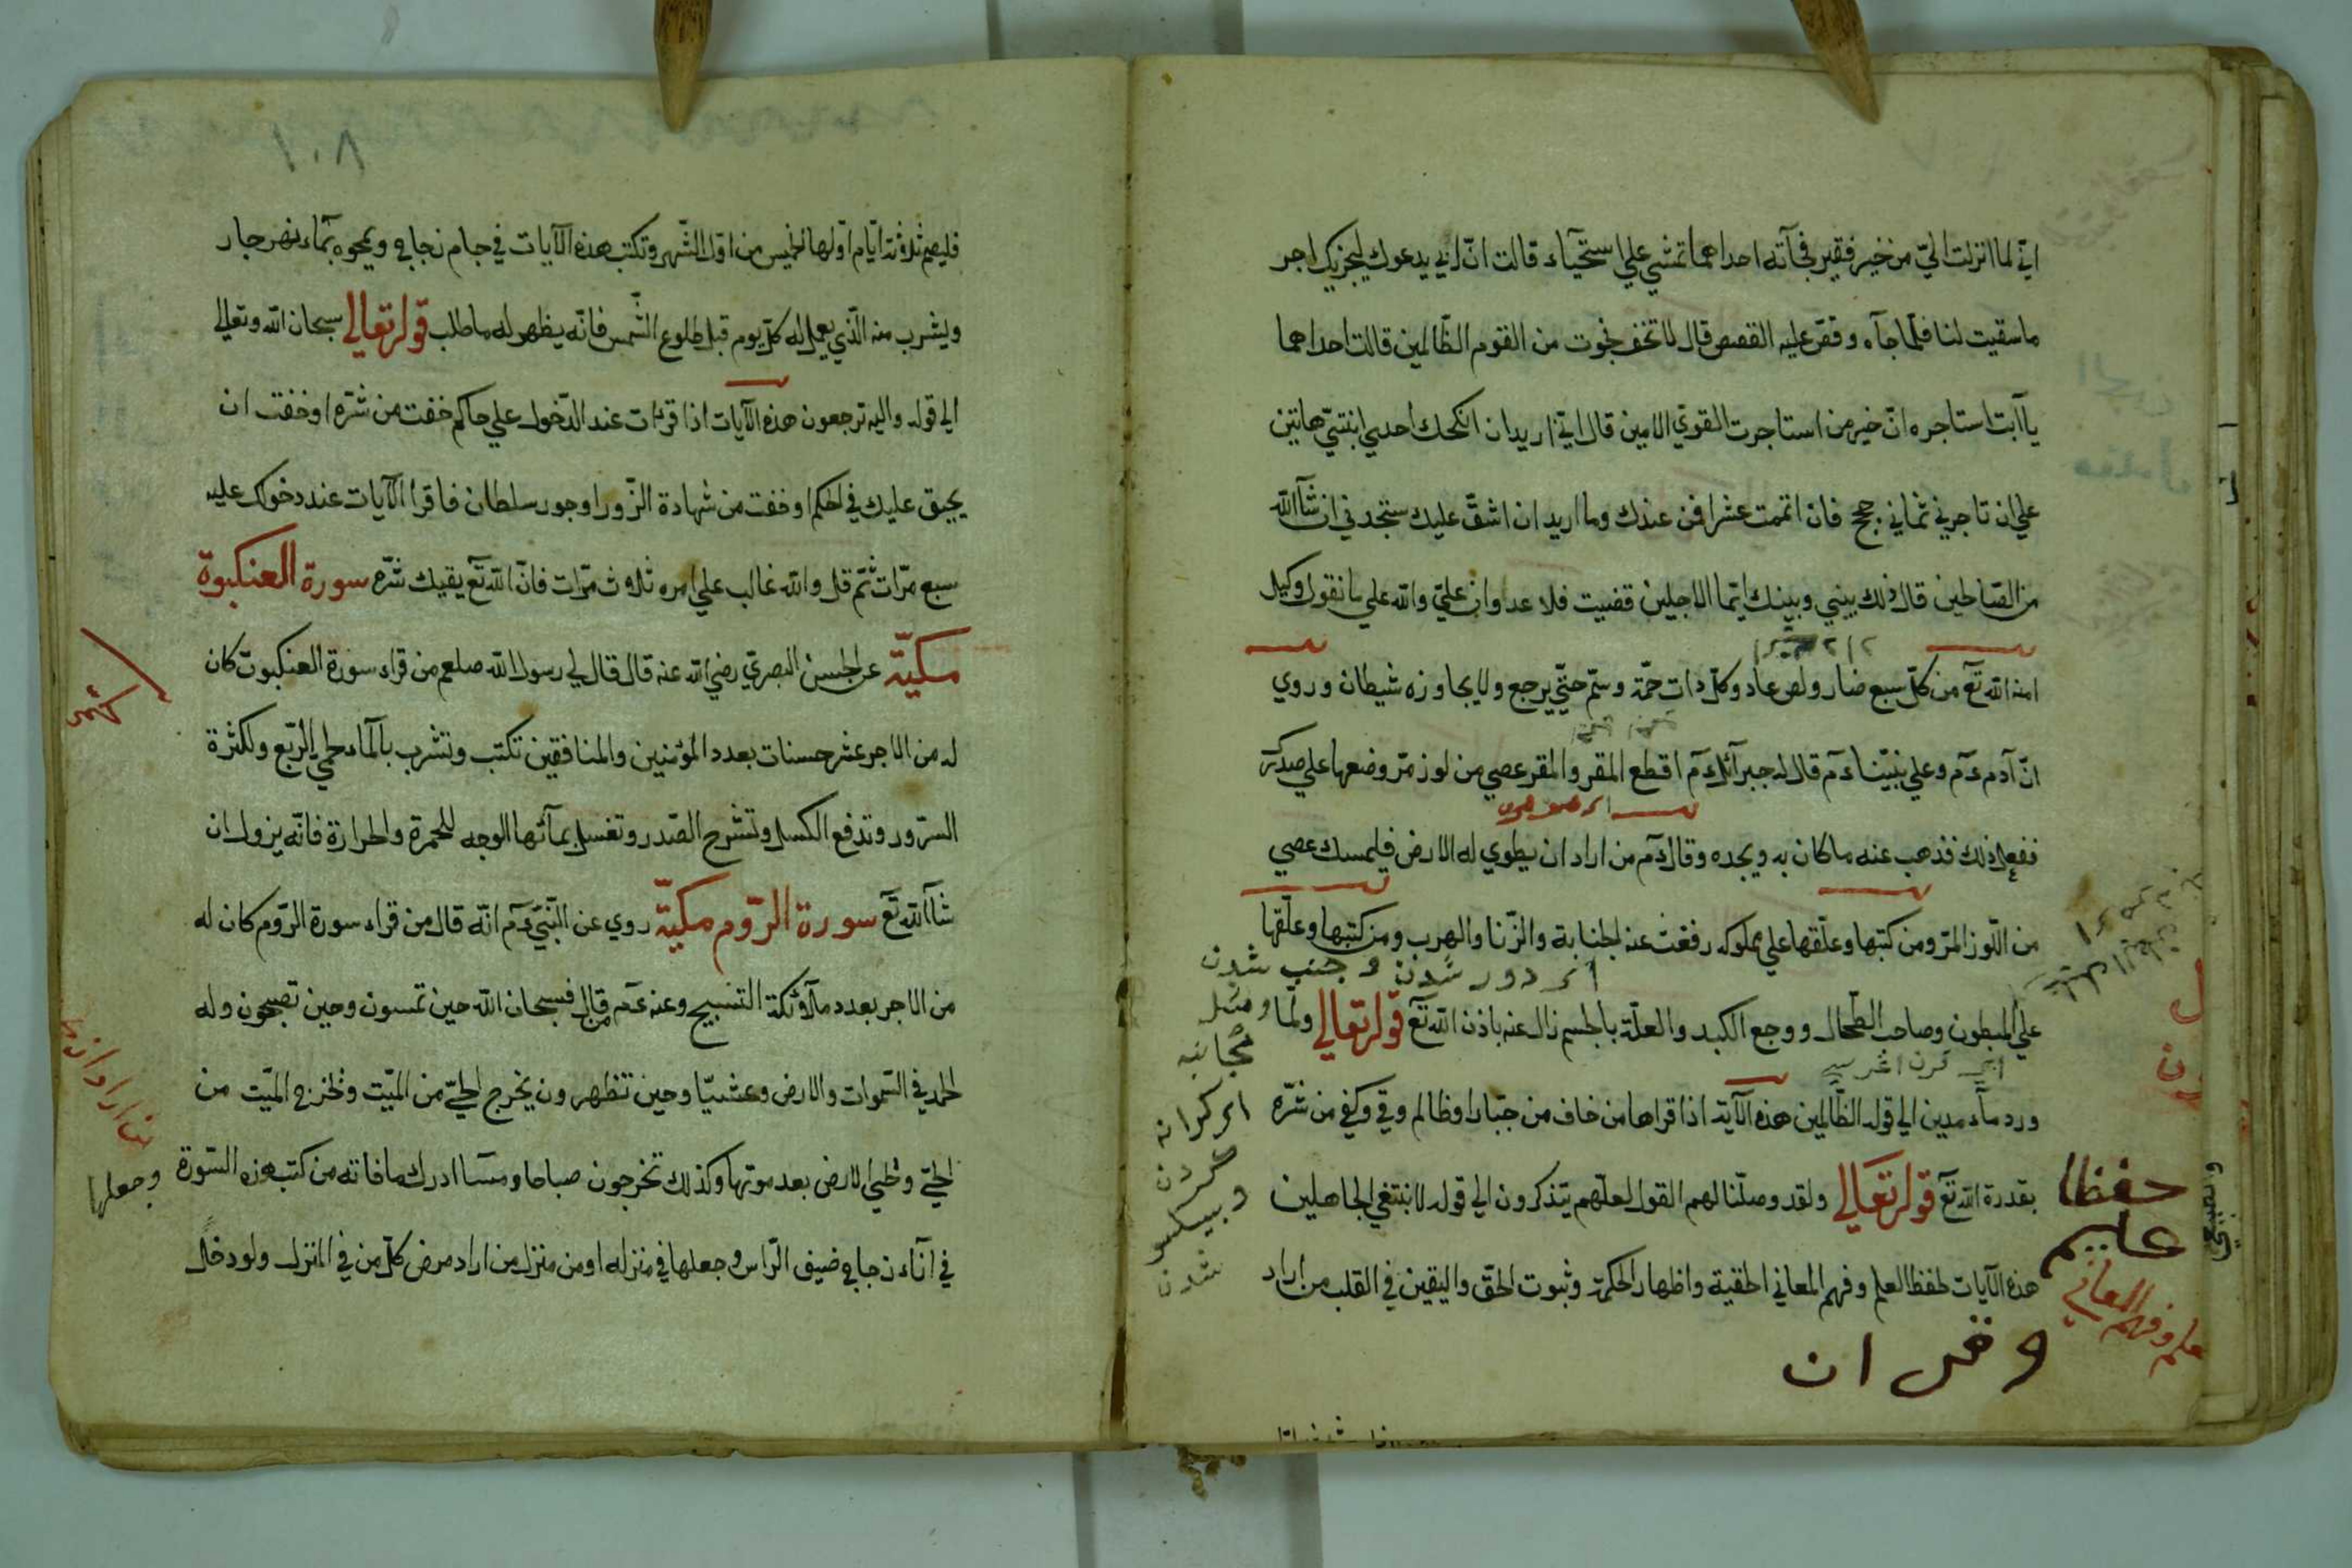 اني لما انزلت الي من خير فقير فجآته احداهما تمشي علي استحيآء قالت ان ابي يدعوك ليجزيك اجر
ما سقيت لنا فلما جآه وقص عليه القصص قال لا تخف نجوت من القوم الظالمين قالت احداهما
يا آبت استاجره ان خير من استاجرت القوي الامين قال اني اريد ان انكحك احدي ابنتي هاتين
علي ان تاجرني ثماني حجج فان اتممت عشرا فمن عندك وما اريد ان اشق عليك ستجدني ان شآ الله
من الصالحين قال ذلك بيني وبينك ايما الاجلين قضيت فلا عدوان علي والله علي ما نقول وكيل
امنه الله تع من كل سبع ضار ولص عاد وكل ذات حمة وستم حتي يرجع ولا يجاوزه شيطان وروي
ان آدم ءم وعلي نبيناءم قال له جبرآئلءم اقطع المقر والمقر عصي من لوز مر وضعها علي صدرك
ففعل ذلك فذهب عنه ما كان به ويجده وقالءم من اراد ان يطوي له الارض فليمسك عصي
من اللوز المر ومن كتبها وعلقها علي مملوكه رفعت عنه الجنابة والزنا والهرب ومن كتبها وعلقها
دور شدن و جنب شدن
علي المبطون وصاحب الطحال ووجع الكبد والعلة بالجسم زال عنه باذن الله تع قوله تعالي ولما
ورد مآء مدين الي قوله الظالمين هذه الآية اذا قراها من خاف من جبار او ظالم وقي وكفي من شره
بقدرة الله تع قوله تعالي ولقد وصلنا لهم القول لعلهم يتذكرون الي قوله لا نبتغي الجاهلين
هذه الآيات لحفظ العلم وفهم المعاني الحقية واظهار الحكمة وثبوت الحق واليقين في القلب من اراد
حفظا
عليم
علم وفهم المعاني
١٠٨
فليصم ثلاثة ايام اولها الخميس من اول الشهر وتكتب هذه الآيات في جام زجاج ويمحوه بمآء نهر جار
وليشرب منه الذي يعمل له كل يوم قبل طلوع الشمس فانه يظهر له ما طلب قوله تعالي سبحان الله وتعالي
الي قوله واليه ترجعون هذه الآيات اذا قرئت عند الدخول علي حاكم خفت من شره او خفت ان
يحيق عليك في الحكم او خفت من شهادة الزور او جور سلطان فاقرا الآيات عند دخولك عليه
سبع مرات ثم قل والله غالب علي امره ثلاث مرات فان الله تع يقيك شره سورة العنكبوة
مكية عن الحسن البصري رضي الله عنه قال قال لي رسول الله صلعم من قراء سورة العنكبوت كان
له من الاجر عشر حسنات بعدد المؤمنين والمنافقين تكتب وتشرب بالمآء لحمي الربع ولكثرة
السرور وتدفع الكسل وتشرح الصدر وتغسل بمآئها الوجه للحمرة والحرارة فانه يزول ان
شآ الله تع سورة الروم مكية روي عن النبيءم انه قال من قراء سورة الروم كان له
من الاجر بعدد ملآئكة التسبيح وعنه ءم قال فسبحان الله حين تمسون وحين تصبحون وله
الحمد في السموات والارض وعشيا وحين تظهرون يخرج الحي من الميت ونخرج الميت من
الحي ونحيي الارض بعد موتها وكذلك تخرجون صباحا ومسآ ادرك ما فاته من كتب هذه السورة وجعلها
في انآء زجاج ضيق الراس وجعلها في منزله او من منزل من اراد مرض كل من في المنزل ولو دخل